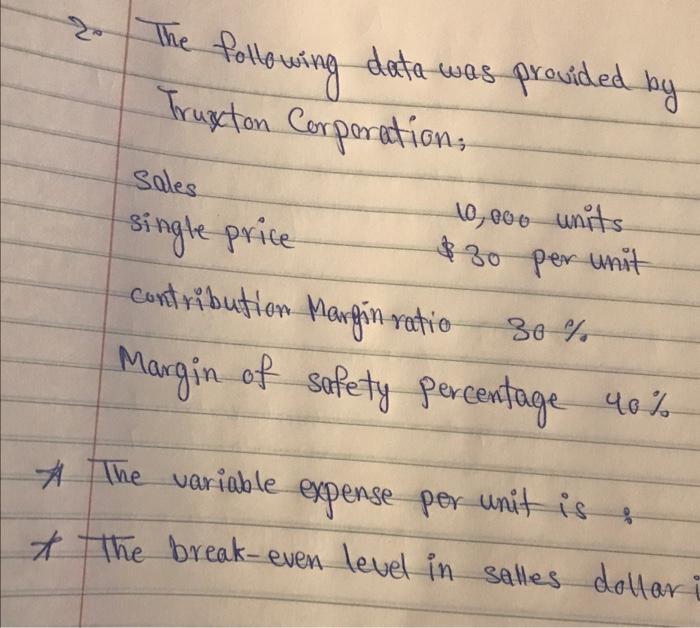 2. The following data was provided by
Truxton Corporation;
Sales 10,000 units
single price $30 per unit
contribution Margin ratio 30 %
Margin of safety percentage 40%
* The variable expense per unit is :
* The break-even level in salles dollar i